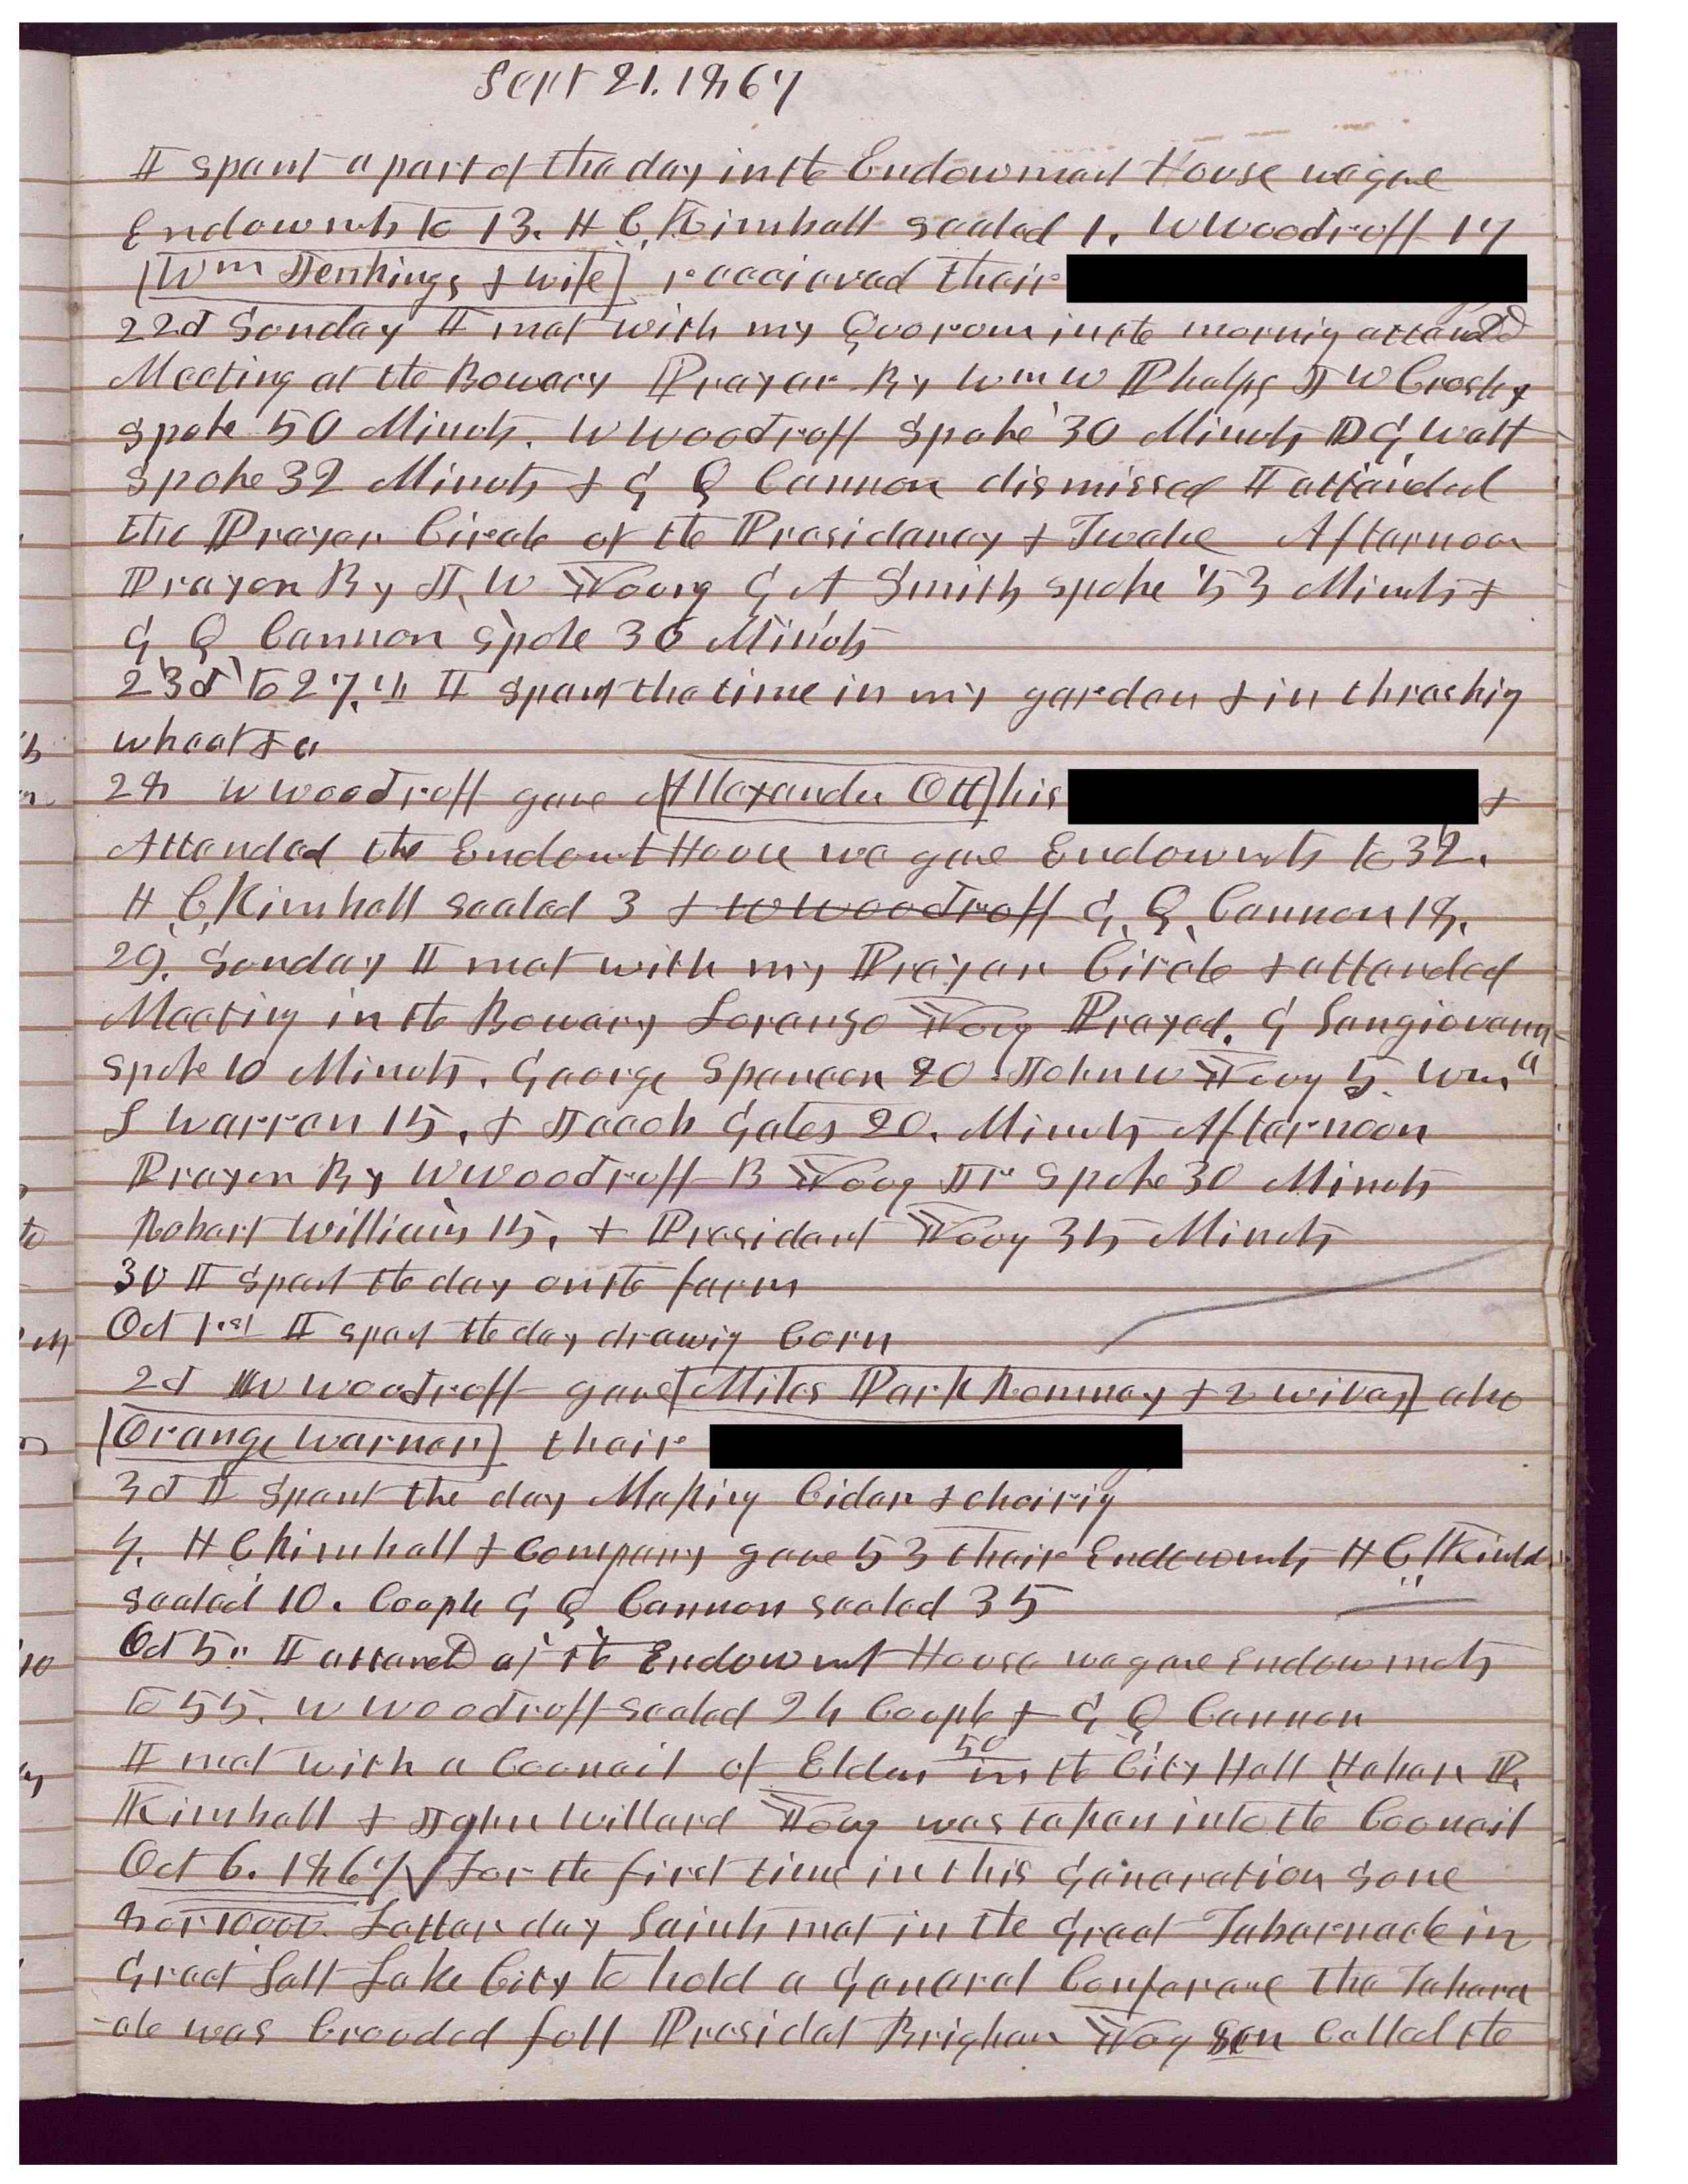 Sept 21. 1867
I spent a part of the day in the Endowment House we gave
Endowmts to 13. H C, Kimball sealed 1. W Woodruff 17
[Wm Jenkings & wife] receieved their
22d Sunday I met with my Quorom in the morning attended
Meeting at the Bowery Prayer By Wm W Phelps J W Crosby
spoke 50 Minuts. W Woodruff Spoke 30 Minuts D G, Watt
spoke 32 Minuts & G Q Cannon dismissed I attended
the Prayer Circle of the Presidency & Twelve Afternoon
Prayer By J. W Young G A Smith spoke 53 Minuts &
G Q Cannon spoke 36 Minuts
23d to 27.th I spent the time in my garden & in thrashing
wheat & c
28 W Woodruff gave [Allexander Ott] his &
Attended the Endowmt House we gave Endowmts to 32.
H C, Kimball sealed 3 & W Woodruff G. Q. Cannon 18.
29. Sunday I met with my Prayer Circle & attended
Meeting in the Bowery Loranzo Young Prayed. G Sangiovann-
spoke 10 Minuts. George Spencer 20. John W Young 5. Wm a
S Warren 15. & Jacob Gates 20. Minuts Afternoon
Prayer By W Woodruff B Young Jr Spoke 30 Minuts
Robert Williams 15. & President Young 35 Minuts
30 I spent the day on the farm
Oct 1st I spent the day drawing Corn
2d W Woodruff gave [Miles Park Romney & 2 wives] also
[Orange Warner] their
3d I spent the day Making Cider & choiring
4. H C Kimball & Company gave 53 their Endowmts H C, Kimbl
sealed 10. Couple G Q Cannon sealed 35
Oct 5" I attend at the Endowmt House we gave Endowmets
to 55. W Woodruff sealed 24 Couple & G Q Cannon
50
I met with a Council of Elders in the City Hall Heber P.
Kimball & John Willard Young was taken into the Council
Oct 6. 1867 For the first time in this Generation some
8 or 10000. Latter day Saints met in the Great Tabernacle in
Great Salt Lake City to hold a General Conferance The Taberna
-cle was Crouded full Presidet Brigham Young sen Called the